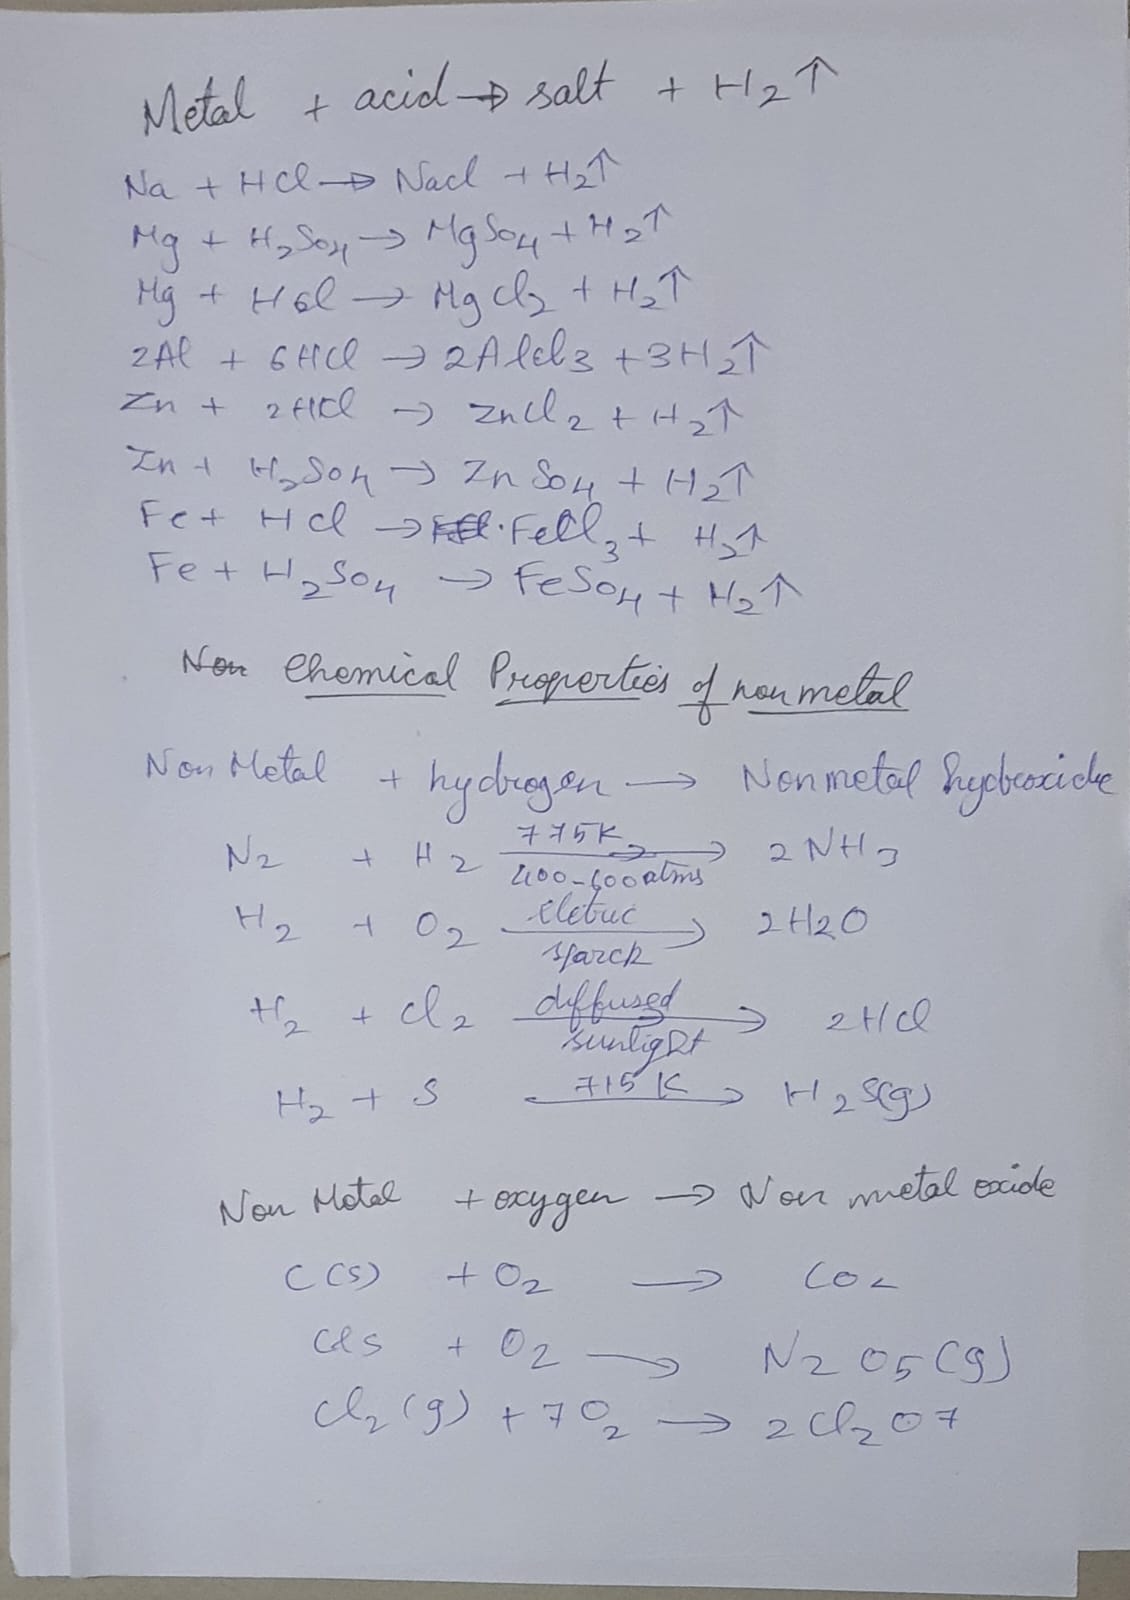 Metal + acid → salt + H2↑
Na + HCl → Nacl + H2↑
Mg + H2So4 → MgSo4 + H2↑
Mg + Hcl → Mgcl2 + H2↑
2Al + 6HCl → 2Alcl3 + 3H2↑
Zn + 2HCl → Zncl2 + H2↑
Zn + H2So4 → ZnSo4 + H2↑
Fe + Hcl → FeCl3 + H2↑
Fe + H2So4 → FeSo4 + H2↑
Non Chemical Properties of non metal
Non Metal + hydrogen → Non metal hydroxide
N2 + H2 775K 400-600atms → 2NH3
H2 + O2 eletric sparck → 2H2O
H2 + cl2 diffused sunlight → 2Hcl
H2 + S 715K → H2S(g)
Non Metal + oxygen → Non metal oxide
C(s) + O2 → CO2
+ O2 → N2O5(g)
Cl2(g) + 7O2 → 2Cl2O7